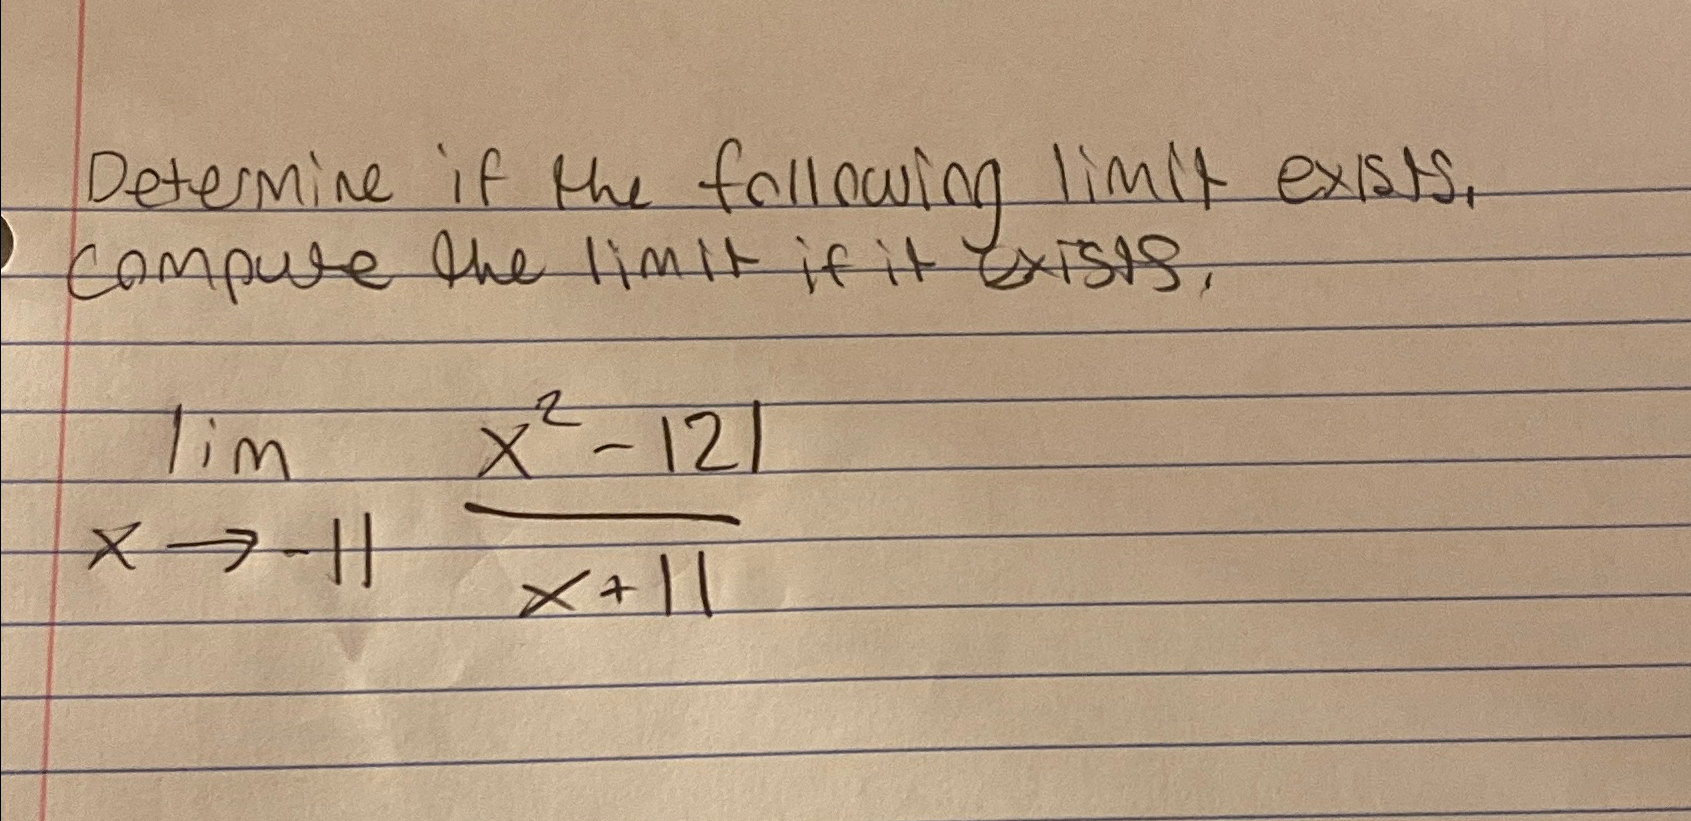 Determine if the following limit exists.
Compute the limit if it exists.
lim x² - 121
x → -11 x + 11